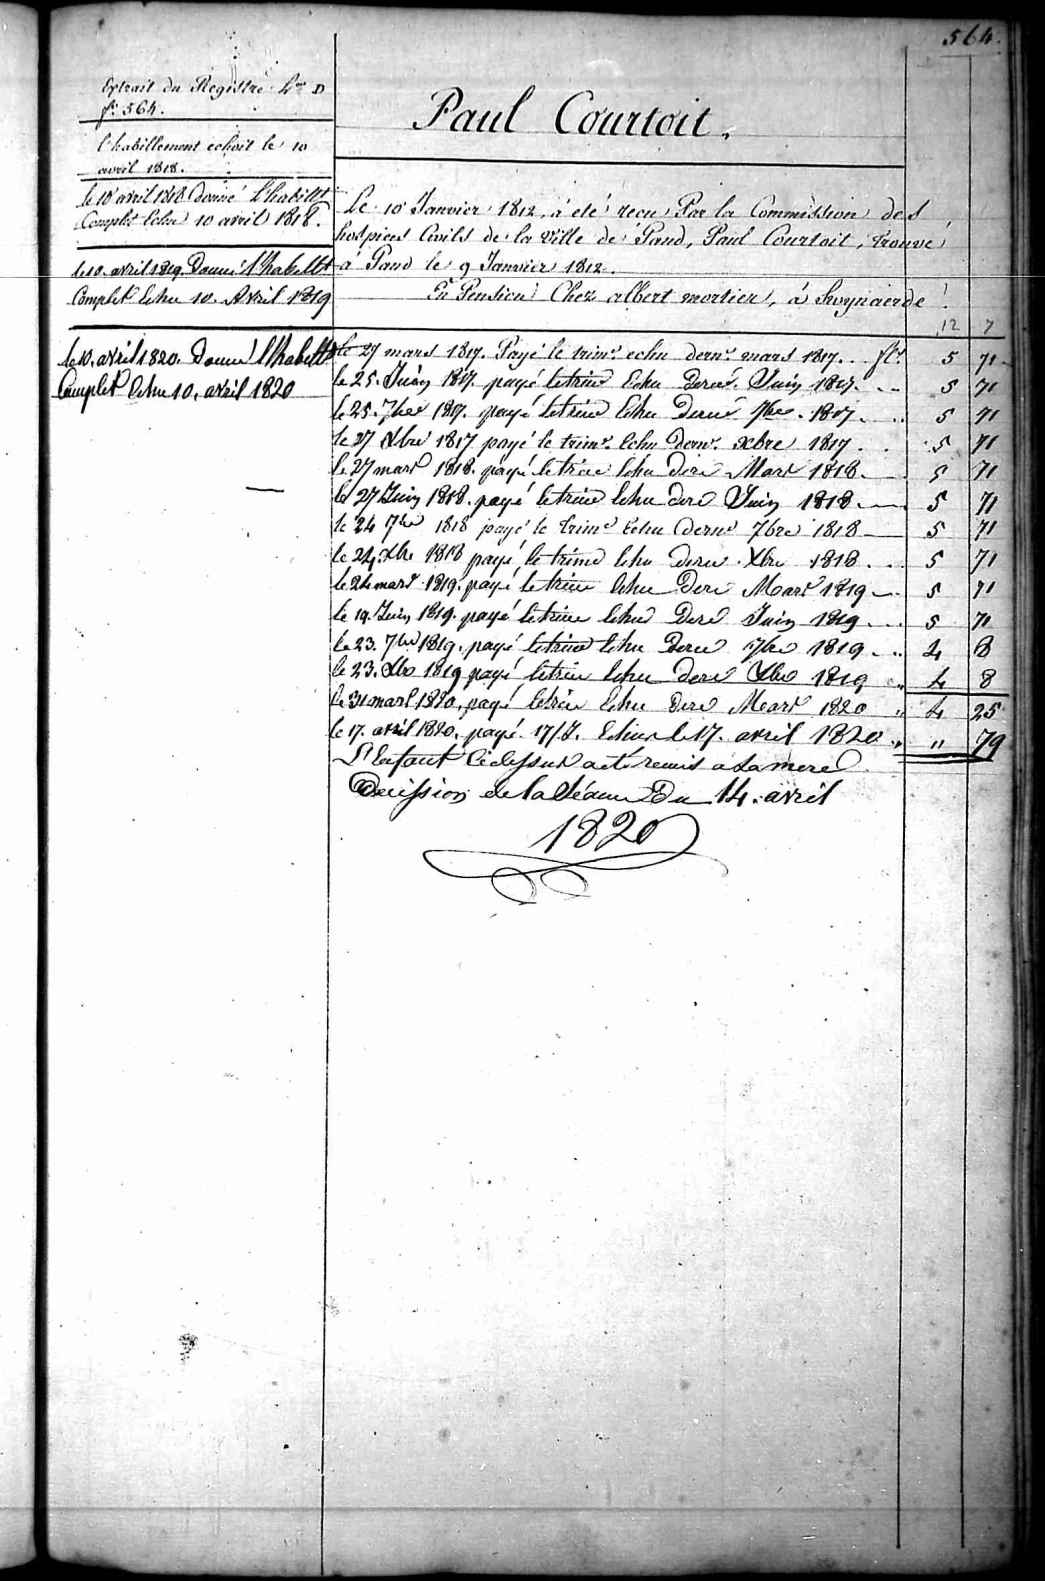 564.
Extrait du Registre Lre D
fo 564.
l'habillement echoit le 10
avril 1818.
le 10 avril 1818 donné l'habillt
Complet Echu 10 avril 1818.
le 10. avril 1819. Donné l'habillt
Complet Echu 10. Avril 1819
le 10. avril 1820. Donné l'habillt
Complet Echu 10. avril 1820
Paul Courtoit.
Le 10 Janvier 1812, à eté recu Par la Commission des
hospices Civils de la Ville de Gand, Paul Courtoit, trouvé
à Gand le 9 Janvier 1812.
En Pension Chez albert mortier, á Swynaerde.
12 7
le 27 mars 1817. Payé le trime echu derne mars 1817. . . fls 5 71
le 25. Juin 1817. payé le trime Echu Derne. Juin 1817. . . 5 71
le 25. 7bre 1817. payé le trime Echu Derne 7bre. 1817. . . 5 71
le 27 Xbre 1817 payé le trime. Echu derne. xbre 1817 . . 5 71
le 27 mars 1818. payé le trime Echu dere Mars 1818. 5 71
le 27 Juin 1818. payé le trime Echu dere Juin 1818. 5 71
le 24 7bre 1818 payé le trime Echu derne 7bre 1818 5 71
le 24 Xbre 1818 payé le trime Echu derne Xbre 1818. . . 5 71
le 24 mars 1819. payé le trime Echu Dere Mars 1819 5 71
le 19. Juin 1819. payé le trime Echu Dere Juin 1819 . . . 5 71
le 23. 7bre 1819. payé le trime Echu Derne 7bre 1819 . . 4 8
le 23. Xbre 1819 payé le trime Echu dere Xbre 1819 " 4 8
le 31 mars 1820, payé le trime Echu Dere Mars 1820 " 4 25
le 17. avril 1820. payé. 17/J. Echus le 17. avril 1820 " " 79
L'Enfant Cidessus a eté remis a sa mere
Decission de la Séance Du 14. avril
1820